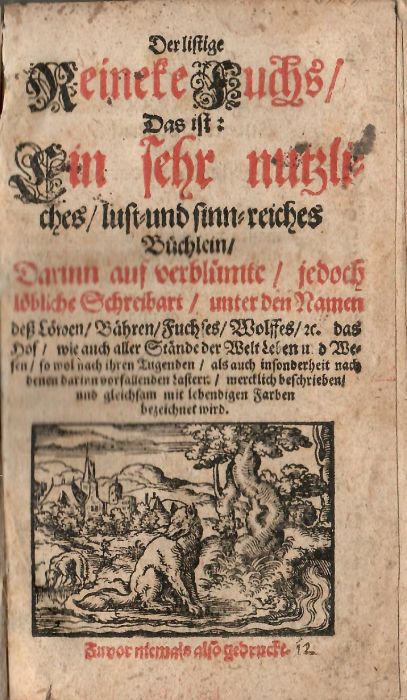 Der listige
Reineke Fuchs/
Das ist:
Ein sehr nutzli-
ches/ lust-und sinn-reiches
Büchlein/
Darinn auf verblümte/ jedoch
löbliche Schreibart/ unter den Namen
deß Löwen/ Bähren/ Fuchses/ Wolffes/ ꝛc. das
Hof/ wie auch aller Stände der Welt Leben und We-
sen/ so wol nach ihren Tugenden/ als auch insonderheit nach
denen darinn vorfallenden Lastern/ mercklich beschrieben/
und gleichsam mit lebendigen Farben
bezeichnet wird.
Zuvor niemals also gedruckt. 12